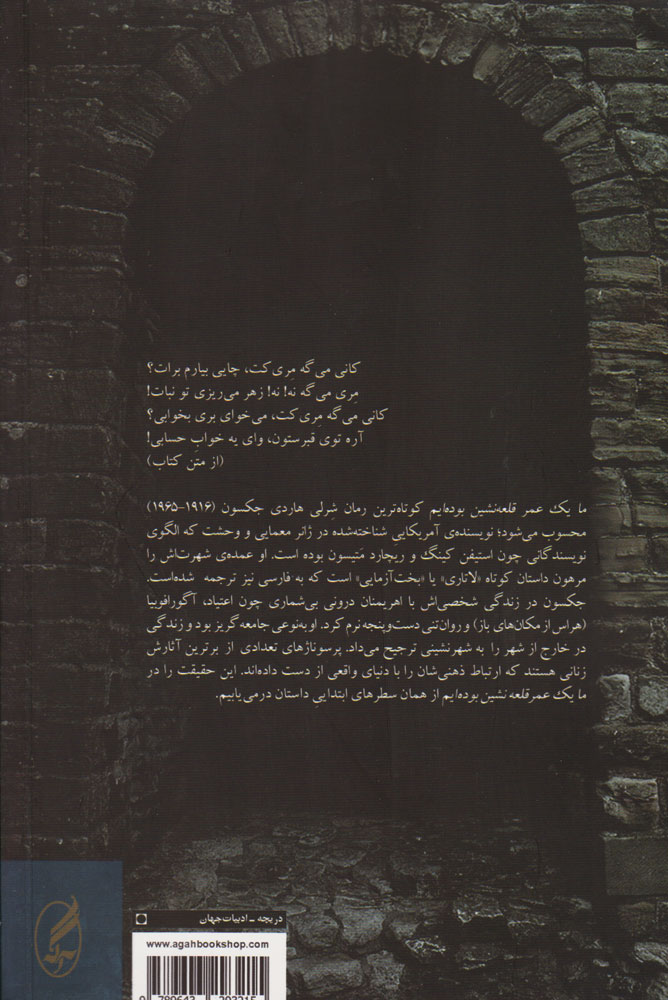 کانی می‌گه مِری‌کت، چایی بیارم برات؟
مِری می‌گه نه! نه! زهر می‌ریزی تو نبات!
کانی می‌گه مِری‌کت، می‌خوای بری بخوابی؟
آره توی قبرستون، وای یه خوابِ حسابی!
(از متن کتاب)
ما یک عمر قلعه‌نشین بوده‌ایم کوتاه‌ترین رمان شِرلی هاردی جکسون (۱۹۱۶-۱۹۶۵)
محسوب می‌شود؛ نویسنده‌ی آمریکایی شناخته‌شده در ژانر معمایی و وحشت که الگوی
نویسندگانی چون استیفن کینگ و ریچارد مَتیسون بوده است. او عمده‌ی شهرت‌اش را
مرهون داستان کوتاه «لاتاری» یا «بخت‌آزمایی» است که به فارسی نیز ترجمه شده‌است.
جکسون در زندگی شخصی‌اش با اهریمنان درونی بی‌شماری چون اعتیاد، آگورافوبیا
(هراس از مکان‌های باز) و روان‌تنی دست‌وپنجه نرم کرد. او به‌نوعی جامعه گریز بود و زندگی
در خارج از شهر را به شهرنشینی ترجیح می‌داد. پرسوناژهای تعدادی از برترین آثارش
زنانی هستند که ارتباط ذهنی‌شان را با دنیای واقعی از دست داده‌اند. این حقیقت را در
ما یک عمر قلعه نشین بوده‌ایم از همان سطرهای ابتداییِ داستان درمی‌یابیم.
دریچه – ادبیات‌جهان
www.agahbookshop.com
9 789643 293215